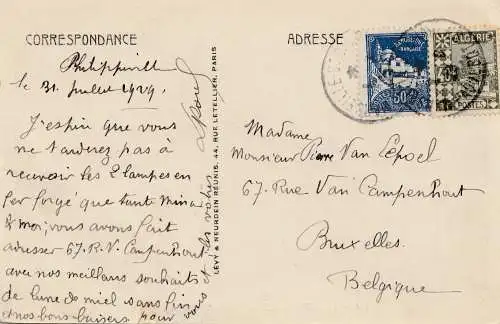 CORRESPONDANCE
Philippeville
le 31 juillet 1929.
J'espère que vous
ne tarderez pas à
recevoir les 2 lampes en
fer forgé que tante Mina
& moi, vous avons fait
adresser 67. R. V. Campenhout
avec nos meilleurs souhaits
de lune de miel sans fin
et nos bons baisers pour
vous et
LÉVY & NEURDEIN RÉUNIS, 44, RUE LETELLIER, PARIS
ADRESSE
RÉPUBLIQUE
FRANÇAISE
50c
ALGÉRIE
POSTES
Madame
Monsieur Pierre Van Lepoel
67. Rue Van Campenhout
Bruxelles.
Belgique.